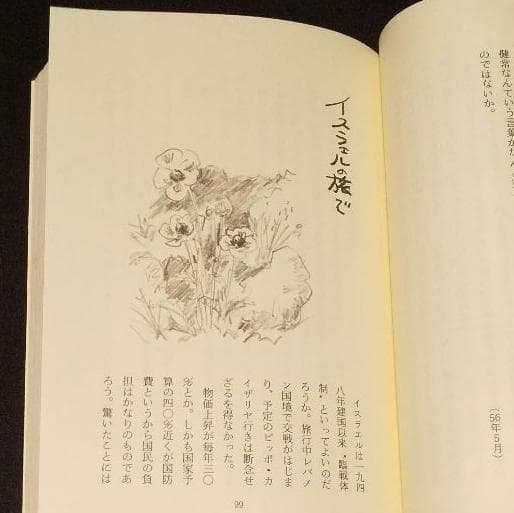 健常なんていう言葉が
のではないか。
（56年5月）
イスラエルの旅で
イスラエルは一九四
八年建国以来〝臨戦体
制〟といってよいのだ
ろうか。旅行中レバノ
ン国境で交戦がはじま
り、予定のピッポ・カ
イザリヤ行きは断念せ
ざるを得なかった。
物価上昇が毎年三〇
％とか。しかも国家予
算の四〇％近くが国防
費というから国民の負
担はかなりのものであ
ろう。驚いたことには
99